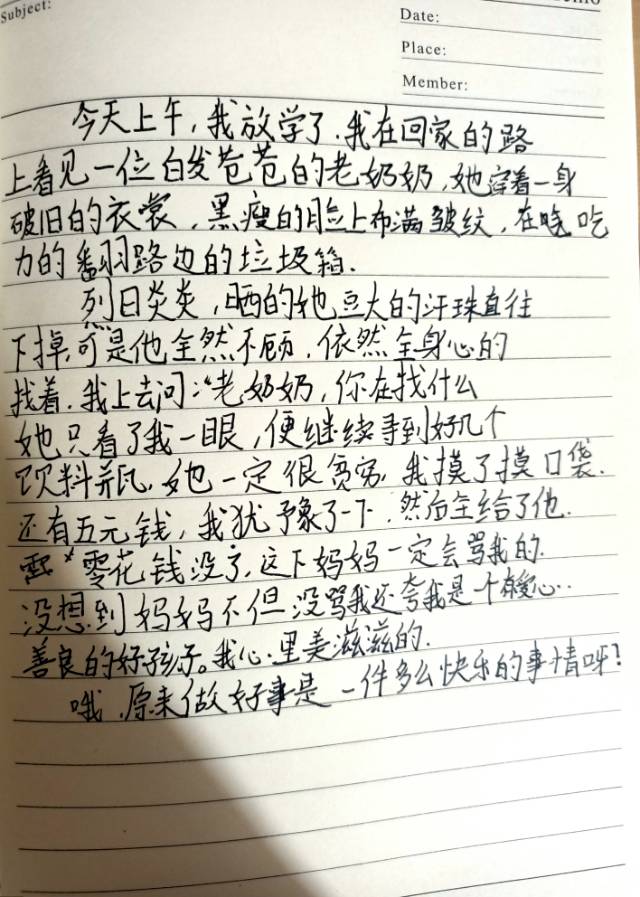 Subject:
Date:
Place:
Member:
今天上午,我放学了.我在回家的路
上看见一位白发苍苍的老奶奶,她穿着一身
破旧的衣裳,黑瘦的脸上布满皱纹,在吃
力的翻路边的垃圾箱.
烈日炎炎,晒的她豆大的汗珠直往
下掉,可是他全然不顾,依然全身心的
找着.我上去问:“老奶奶,你在找什么
她只看了我一眼,便继续寻到好几个
饮料瓶.她一定很贫穷,我摸了摸口袋.
还有五元钱,我犹豫了一下.然后全给了他.
零花钱没了,这下妈妈一定会骂我的.
没想到妈妈不但没骂我还夸我是一个有爱心..
善良的好孩子。我心里美滋滋的.
哦,原来做好事是一件多么快乐的事情呀?